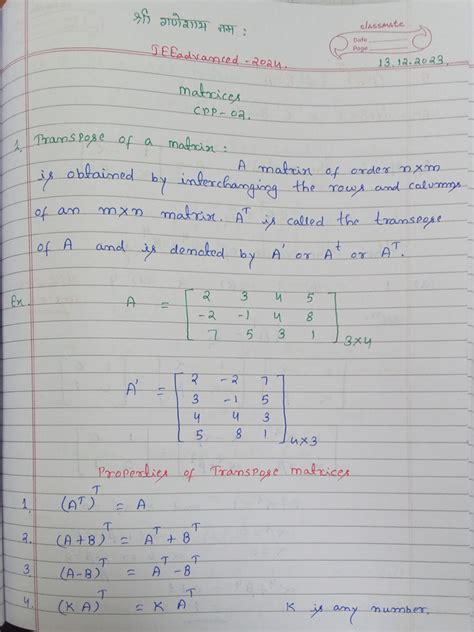 श्री गणेशाय नमः
classmate
Date
Page
JEE advanced - 2024.
13.12.2023.
Matrices
CPP-02.
1. Transpose of a matrix :
A matrix of order n×m
is obtained by interchanging the rows and columns
of an m×n matrix. Aᵀ is called the transpose
of A and is denoted by A' or Aᵗ or Aᵀ.
Ex. A = [ 2 3 4 5
-2 -1 4 8
7 5 3 1 ] 3×4
A' = [ 2 -2 7
3 -1 5
4 4 3
5 8 1 ] 4×3
Properties of Transpose matrices
1. (Aᵀ)ᵀ = A
2. (A+B)ᵀ = Aᵀ + Bᵀ
3. (A-B)ᵀ = Aᵀ - Bᵀ
4. (KA)ᵀ = K Aᵀ K is any number.